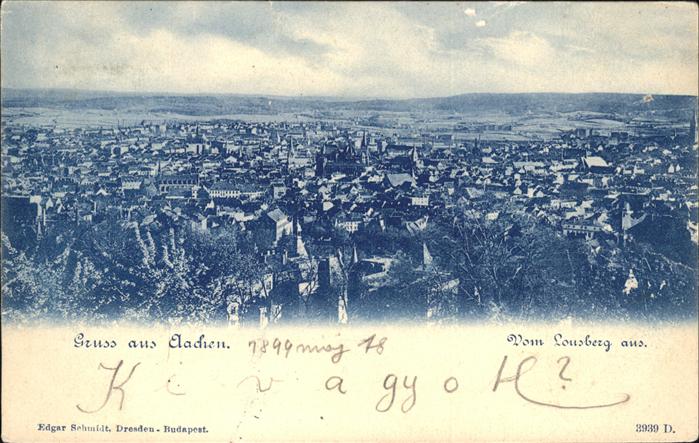 Gruss aus Aachen. 1899 maj 18 Vom Lousberg aus.
Ki vagyok?
Edgar Schmidt, Dresden - Budapest. 3939 D.